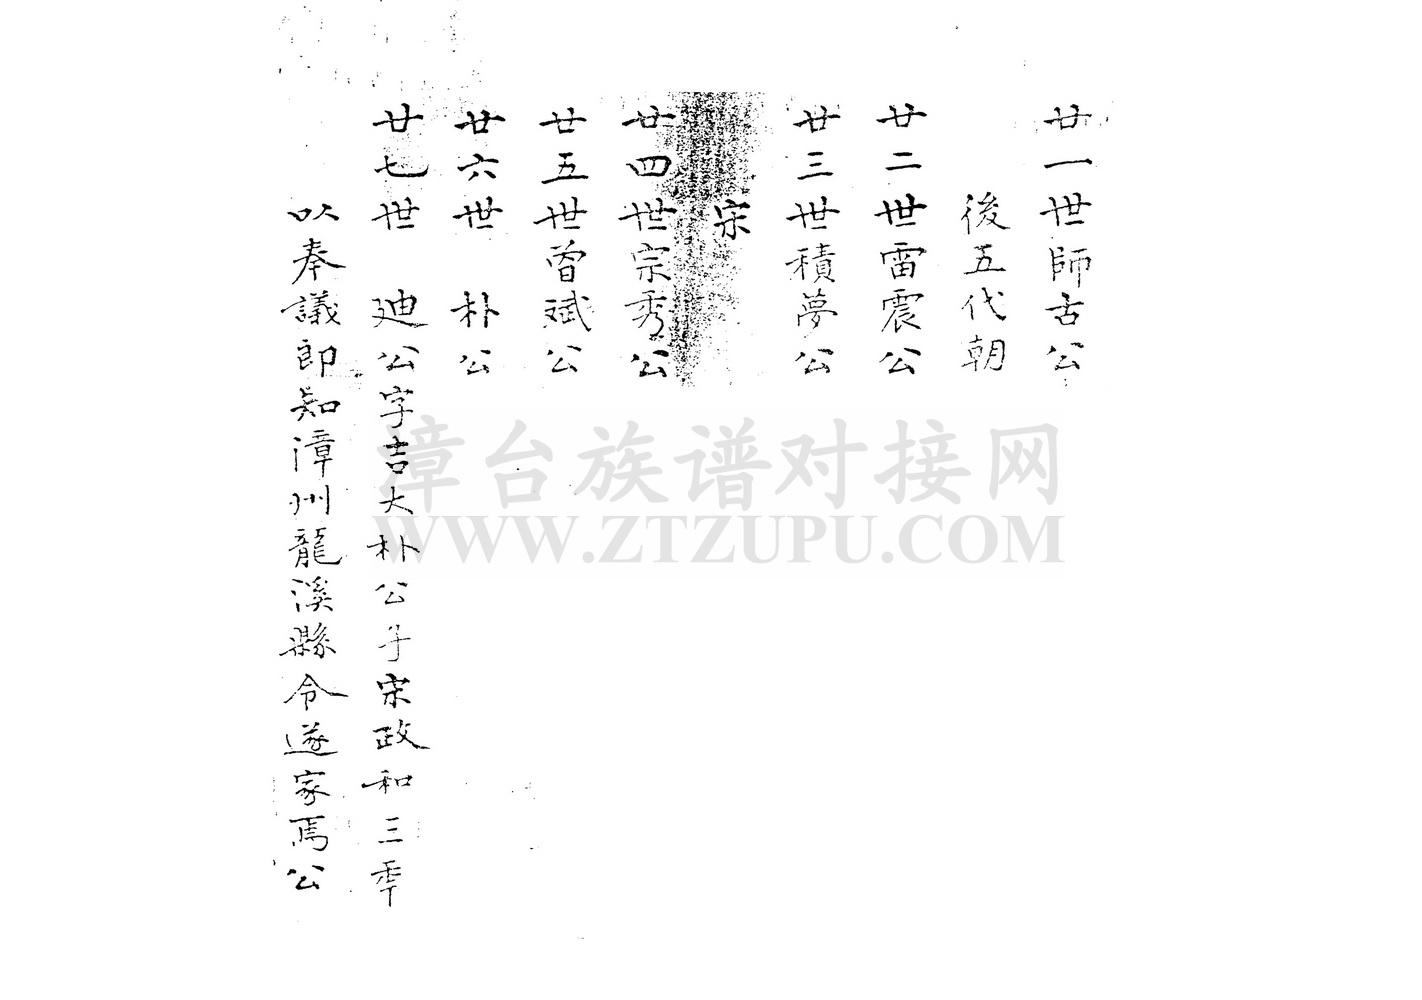 廿一世師古公
後五代朝
廿二世雷震公
廿三世積夢公
宋
廿四世宗秀公
廿五世曾斌公
廿六世 朴公
廿七世 迪公字吉大朴公子宋政和三年
以奉議郎知漳州龍溪縣令遂家焉公
漳台族谱对接网
WWW.ZTZUPU.COM